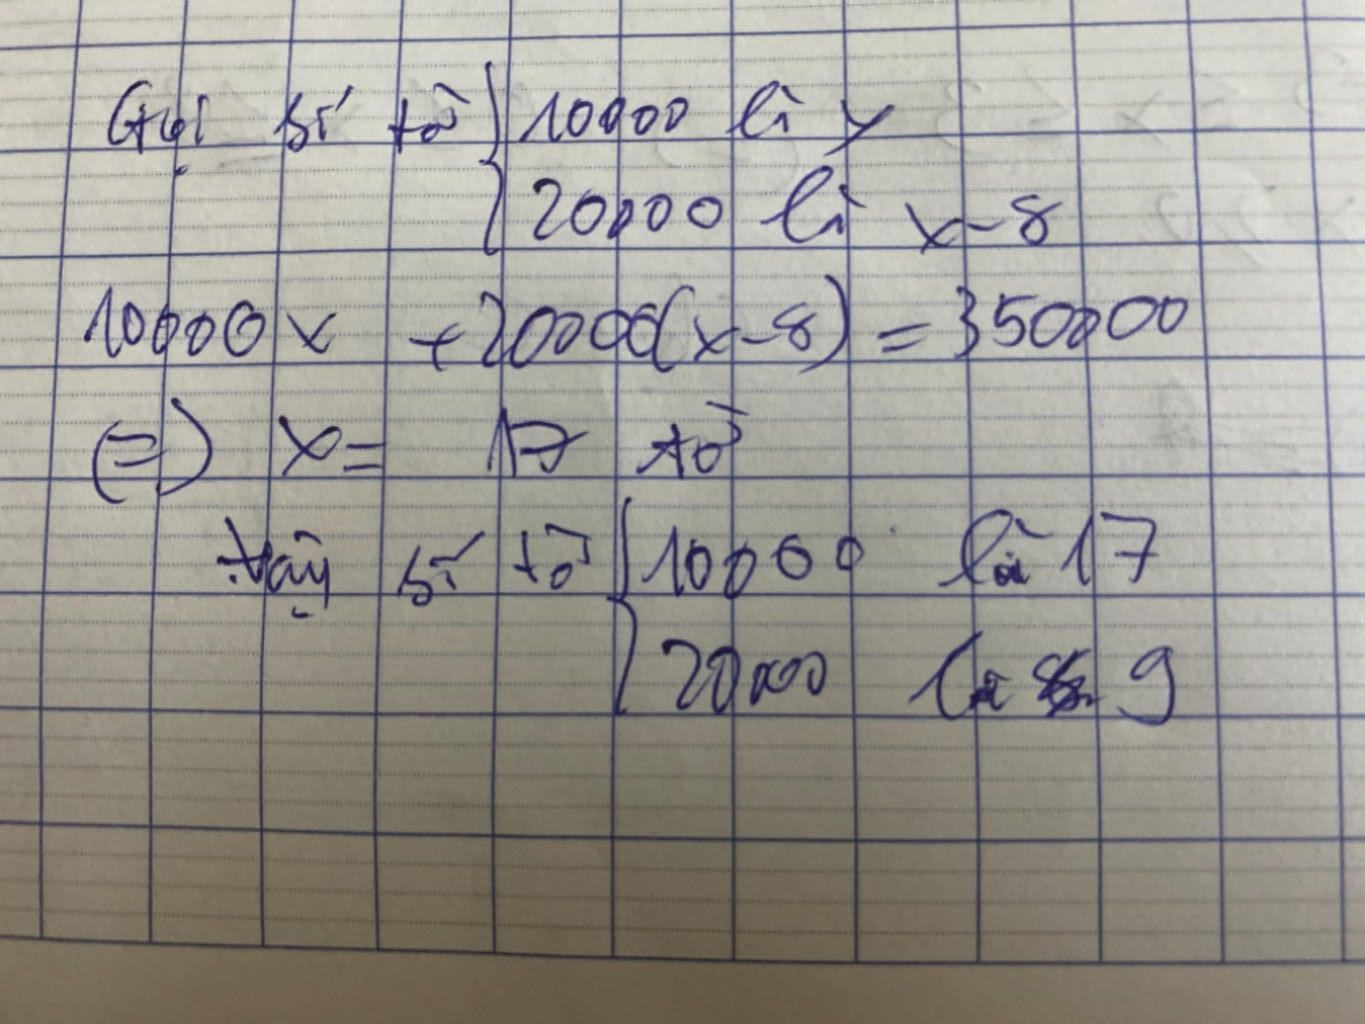 Gọi số tờ { 10000 là x
20000 là x-8
10000x +20000(x-8) = 350000
(=) x= 17 tờ
Vậy số tờ { 10000 là 17
20000 là 9